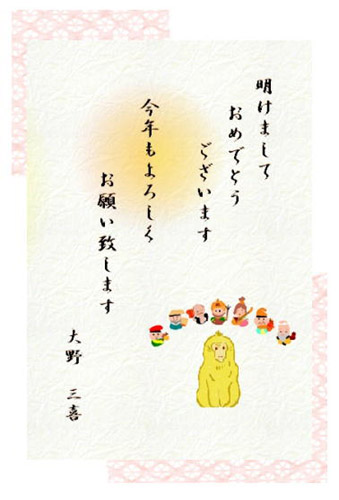 明けまして
おめでとう
ございます
今年もよろしく
お願い致します
大野 三喜